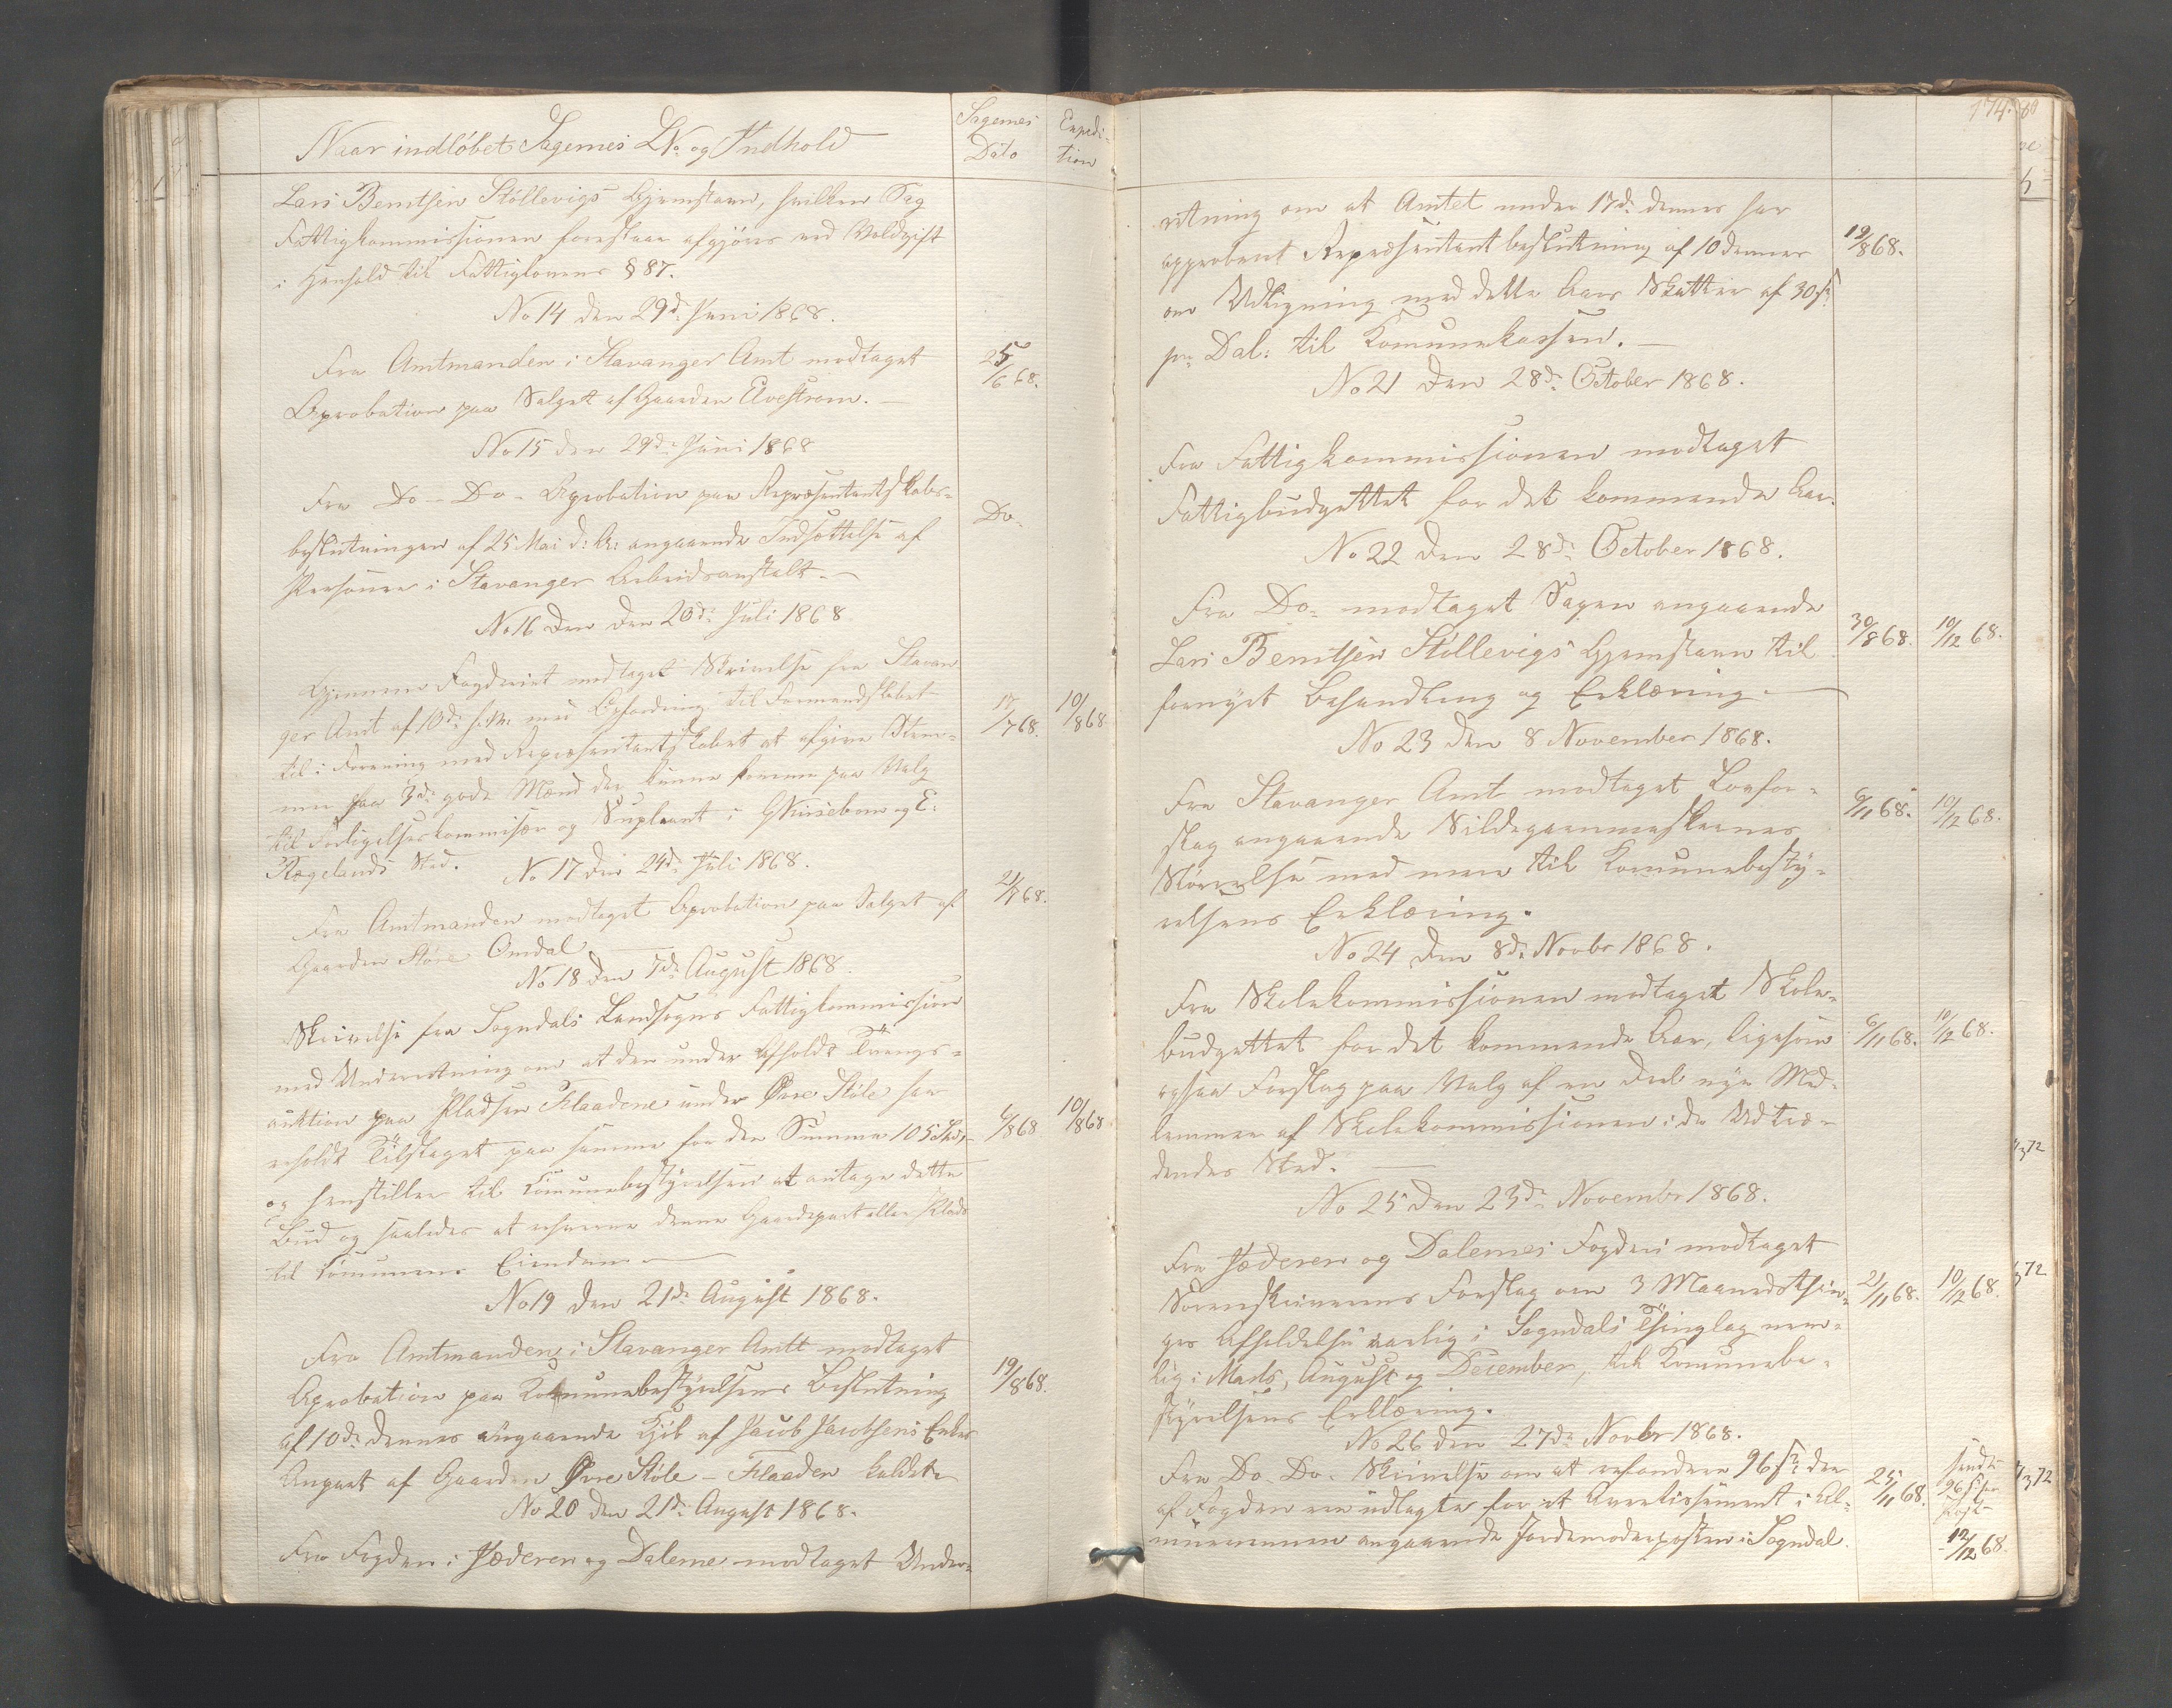 Naar indløbet Sagernes LNo. og Indhold
Sagernes Dato
Expedi-
tion
Lars Bentsen Støllevigs Hjemstavn, hvilken Sag
Fattigkommissionen foreslaar afgjøres ved Voldgift
i Henhold til Fattiglovens § 87.
No 14 den 29de Juni 1868.
Fra Amtmanden i Stavanger Amt modtaget
25/6 68.
Aprobation paa Salget af Gaarden Elvestrøm. —
No 15 den 29de Juni 1868
Fra Do - Do - Aprobation paa Repræsentantskabs-
beslutningen af 25 Mai d: A: angaaende Indsættelse af
Do.
Personer i Stavanger Arbeidsanstalt. —
No 16 den den 20de Juli 1868
Gjennem Fogderiet modtaget Skrivelse fra Stavan
ger Amt af 10de med Opfordring til Formandskabet
17/7 68.
10/8 68
til i Forening med Repræsentantskabet at afgive Stem-
mer paa 3de gode Mænd der kunne komme paa Valg
til Forligelseskommisær og Supleant i og E.
Rægelands Sted.
No 17 den 24de Juli 1868.
Fra Amtmanden modtaget Aprobation paa Salget af
21/7 68.
Gaarden Store Omdal
No 18 den 7de August 1868.
Skrivelse fra Sogndals Landsogns Fattigkommission
med Underretning om at den under Afholdt Tvangs-
auktion paa Pladsen Flaadene under Øvre Støle har
erholdt Tilslaget paa samme for den Summa 105
6/8 68
10/8 68
og henstiller til Comunebestyrelsen at antage dette
Bud og saaledes at erhverve denne Gaardepart eller Plads
til Comunens Eiendom —
No 19 den 21de August 1868.
Fra Amtmanden i Stavanger Amt modtaget
Aprobation paa Komunebestyrelsens Beslutning
19/8 68.
af 10de dennes angaaende Kjøb af Jacob Jacobsens Enkes
Anpart af Gaarden Øvre Støle – Flaaden kaldet.
No 20 den 21de August 1868.
Fra Fogden i Jæderen og Dalerne modtaget Under-
174.
retning om at Amtet under 17de dennes har
approberet Repræsentantbeslutning af 10 dennes
19/8 68.
om Udligning med dette Aars Skatter af 30 ß
pr. Dal: til Komunekassen. —
No 21 den 28de October 1868.
Fra Fattigkommissionen modtaget
Fattigbudgettet for det kommende Aar.
No 22 den 28de October 1868.
Fra Do- modtaget Sagen angaaende
Lars Bentsen Støllevigs Hjemstavn til
30/8 68.
10/12 68.
fornyet Behandling og Erklæring. —
No 23 den 8 November 1868.
Fra Stavanger Amt modtaget Lovfor-
slag angaaende Sildegarnmaskernes
6/11 68.
10/12 68.
Størrelse med mere til Komunebesty-
relsens Erklæring.
No 24 den 8de Novbr 1868.
Fra Skolekommissionen modtaget Skole-
budgettet for det kommende Aar, ligesom
6/11 68.
10/12 68.
ogsaa Forslag paa Valg af en Deel nye Med-
lemmer af Skolekommissionen i de Udtræ-
dendes Sted. —
No 25 den 23de Novembr 1868.
Fra Jæderen og Dalernes Fogderi modtaget
Sorenskriverens Forslag om 3 Maanedsthin-
21/11 68.
10/12 68.
ges Afholdelse aarlig i Sogndals Thinglag nem-
lig i Marts, August og December, til Komunebe-
styrelsens Erklæring.
No 26 den 27de Novbr 1868.
Fra Do. Do. Skrivelse om at refundere 96 ß der
25/11 68.
sendt
96 ß
12/12 68.
af Fogden ere udlagte for et Avertissement i
angaaende Jordemoderposten i Sogndal.